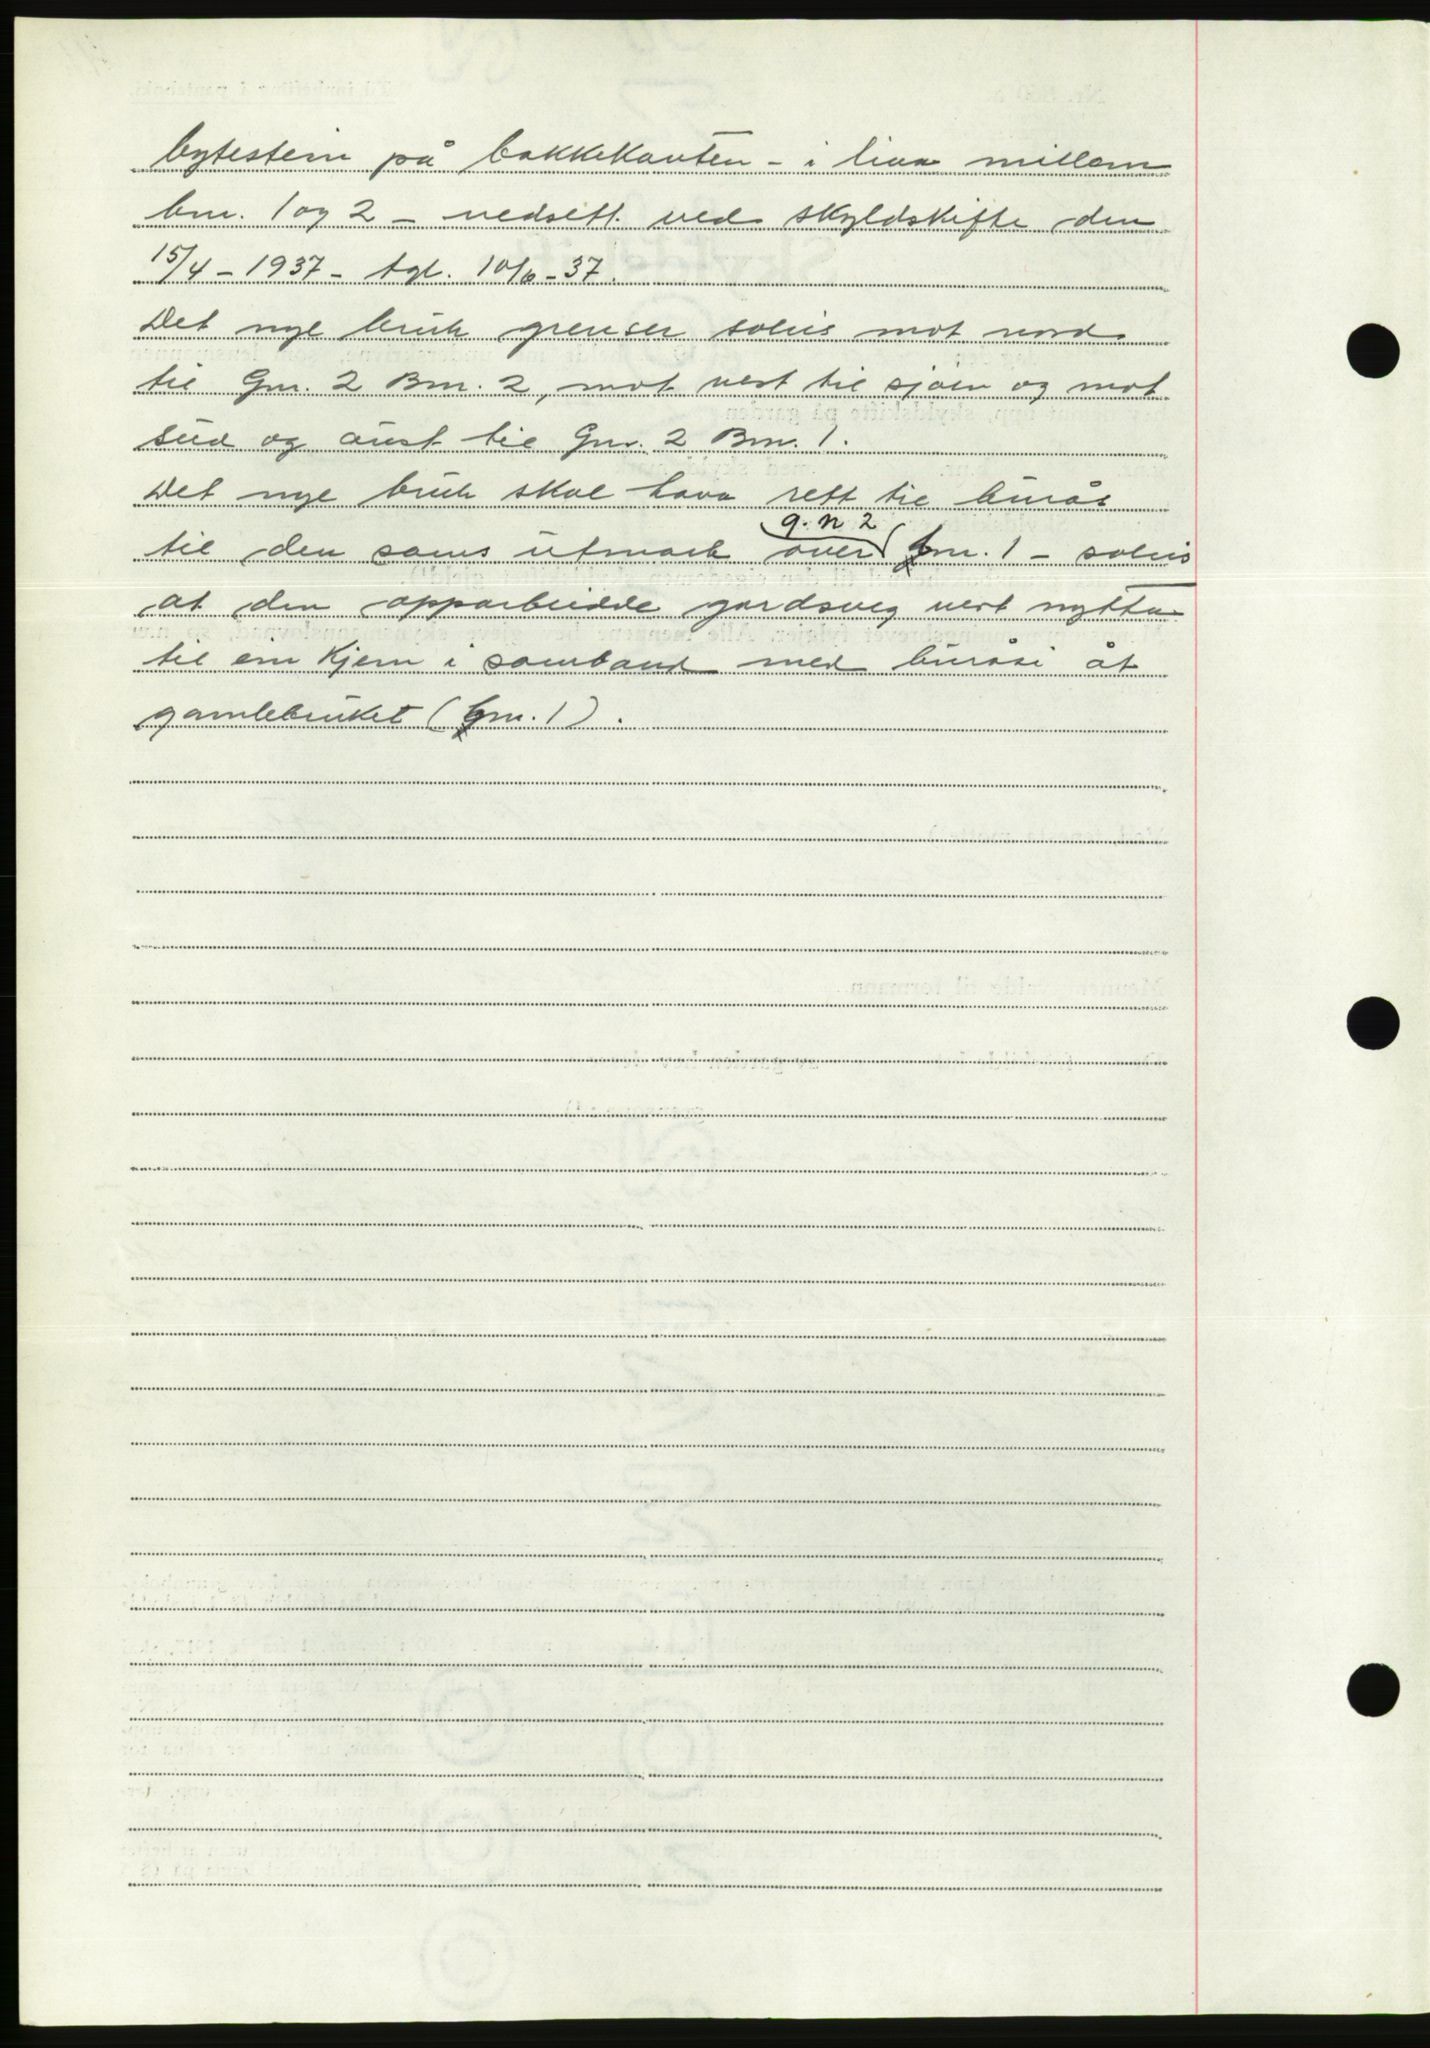 bytestein på bakkekanten - i lina millom
bnr. 1 og 2 - nedsett ved skyldskifte den
15/4 - 1937 - tgl. 10/6 - 37.
Det nye bruk grenser soleis mot nord
til Gnr. 2 Bnr. 2, mot vest til sjøen og mot
sud og aust til Gnr. 2 Bnr. 1.
Det nye bruk skal hava rett til burås
g. n 2
til den sams utmark over bnr. 1 - soleis
at den opparbeidde gardsveg vert nytta
til ein kjem i samband med buråsi åt
gamlebruket (bnr. 1).